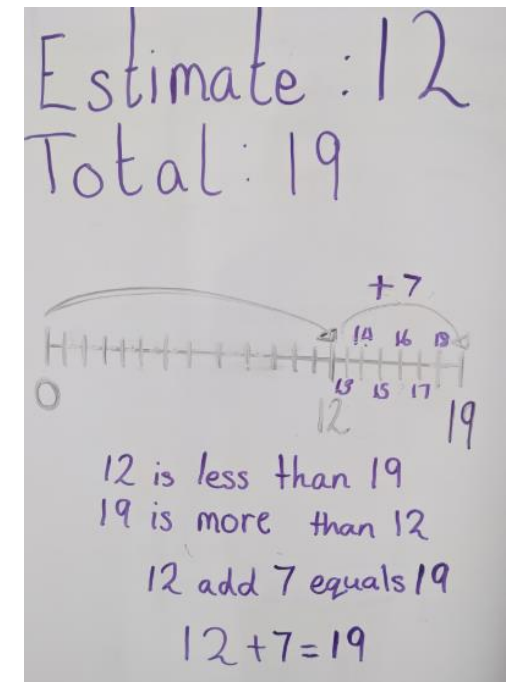 Estimate : 12
Total : 19
+7
14 16 18
13 15 17
0 12 19
12 is less than 19
19 is more than 12
12 add 7 equals 19
12+7=19